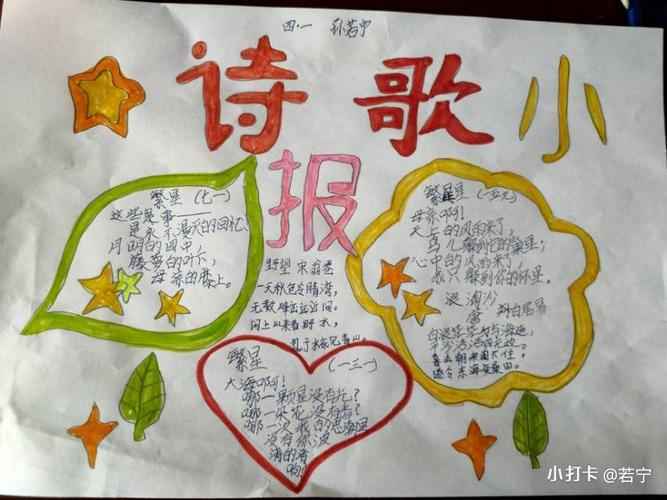 四·一 孙若宁
诗歌小
报
繁星(七一)
这些是事——
是永不漫灭的回忆,
月明的园中,
藤萝的叶下,
母亲的膝上。
繁星 (一五九)
母亲啊!
天上的风雨来了,
鸟儿躲到它的巢里;
心中的风雨来了,
我只躲到你的怀里。
浪淘沙
唐 白居易
白浪茫茫与海连,
平沙浩浩四无边。
暮去朝来淘不住,
遂令东海变桑田。
野望 宋 翁卷
一天秋色冷晴湾,
无数峰峦远近间。
闲上山来看野水,
繁星 (一三一)
大海啊!
哪一颗星没有光?
哪一朵花没有香?
哪一次我的思潮里
没有你波
涛的清
响?
小打卡 @若宁